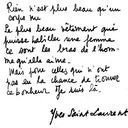 Rien n'est plus beau qu'un
corps nu
Le plus beau vêtement qui
puisse habiller une femme
ce sont les bras de l'hom-
me qu'elle aime.
Mais pour celles qui n'ont
pas eu la chance de trouver
ce bonheur je suis là.
Yves Saint Laurent